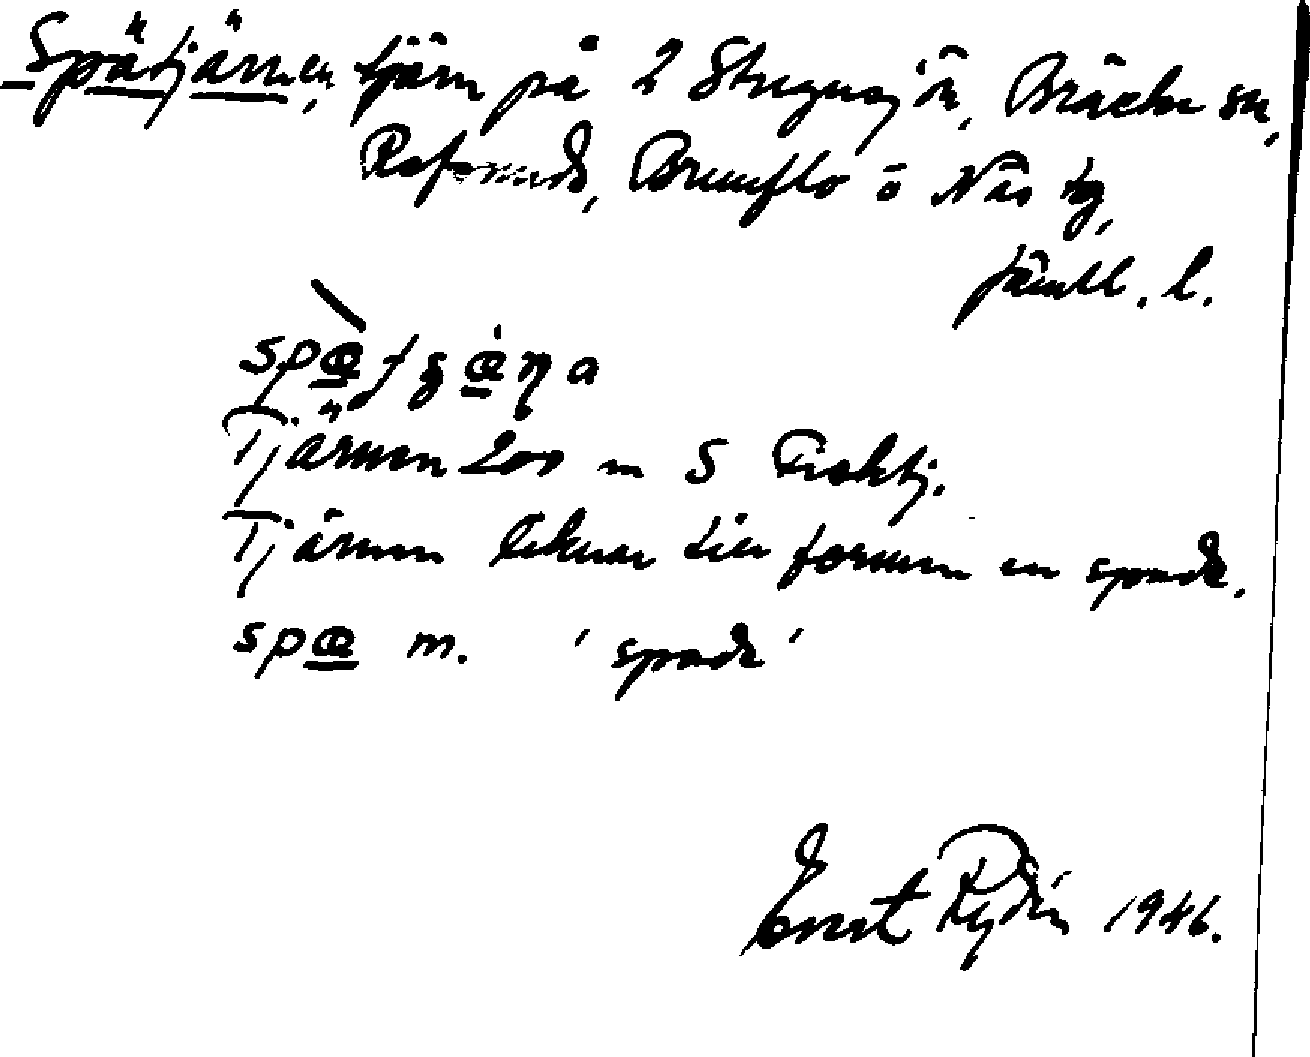 Spätjärnen, tjärn på 2 Stugusjön, Bräcke sn,
Refsunds, Brunflo o Näs tg,
Jämtl. l.
Tjärnen 200 m S Fisktj.
Tjärnen liknar till formen en spade.
spæ m. 'spade'
Ernst Rydén 1946.